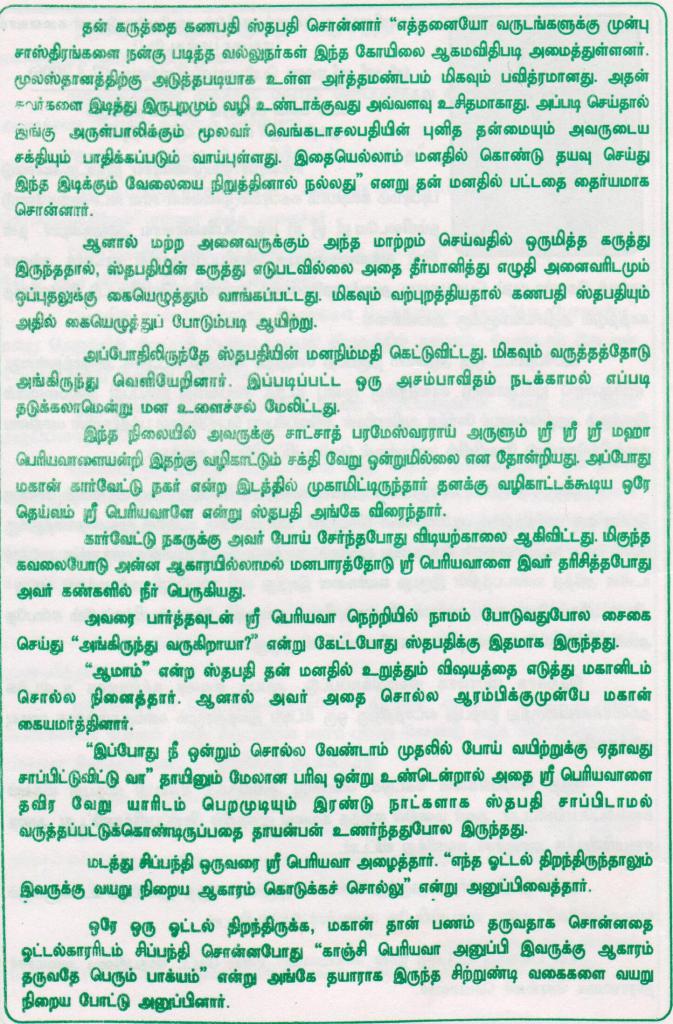 தன் கருத்தை கணபதி ஸ்தபதி சொன்னார் “எத்தனையோ வருடங்களுக்கு முன்பு
சாஸ்திரங்களை நன்கு படித்த வல்லுநர்கள் இந்த கோயிலை ஆகமவிதிபடி அமைத்துள்ளனர்.
மூலஸ்தானத்திற்கு அடுத்தபடியாக உள்ள அர்த்தமண்டபம் மிகவும் பவித்ரமானது. அதன்
சுவர்களை இடித்து இருபுறமும் வழி உண்டாக்குவது அவ்வளவு உசிதமாகாது. அப்படி செய்தால்
இங்கு அருள்பாலிக்கும் மூலவர் வெங்கடாசலபதியின் புனித தன்மையும் அவருடைய
சக்தியும் பாதிக்கப்படும் வாய்புள்ளது. இதையெல்லாம் மனதில் கொண்டு தயவு செய்து
இந்த இடிக்கும் வேலையை நிறுத்தினால் நல்லது” எனறு தன் மனதில் பட்டதை தைர்யமாக
சொன்னார்.
ஆனால் மற்ற அனைவருக்கும் அந்த மாற்றம் செய்வதில் ஒருமித்த கருத்து
இருந்ததால், ஸ்தபதியின் கருத்து எடுபடவில்லை அதை தீர்மானித்து எழுதி அனைவரிடமும்
ஒப்புதலுக்கு கையெழுத்தும் வாங்கப்பட்டது. மிகவும் வற்புறத்தியதால் கணபதி ஸ்தபதியும்
அதில் கையெழுத்துப் போடும்படி ஆயிற்று.
அப்போதிலிருந்தே ஸ்தபதியின் மனநிம்மதி கெட்டுவிட்டது. மிகவும் வருத்தத்தோடு
அங்கிருந்து வெளியேறினார். இப்படிப்பட்ட ஒரு அசம்பாவிதம் நடக்காமல் எப்படி
தடுக்கலாமென்று மன உளைச்சல் மேலிட்டது.
இந்த நிலையில் அவருக்கு சாட்சாத் பரமேஸ்வரராய் அருளும் ஸ்ரீ ஸ்ரீ ஸ்ரீ மஹா
பெரியவாளையன்றி இதற்கு வழிகாட்டும் சக்தி வேறு ஒன்றுமில்லை என தோன்றியது. அப்போது
மகான் கார்வேட்டு நகர் என்ற இடத்தில் முகாமிட்டிருந்தார் தனக்கு வழிகாட்டக்கூடிய ஒரே
தெய்வம் ஸ்ரீ பெரியவாளே என்று ஸ்தபதி அங்கே விரைந்தார்.
கார்வேட்டு நகருக்கு அவர் போய் சேர்ந்தபோது விடியற்காலை ஆகிவிட்டது. மிகுந்த
கவலையோடு அன்ன ஆகாரயில்லாமல் மனபாரத்தோடு ஸ்ரீ பெரியவாளை இவர் தரிசித்தபோது
அவர் கண்களில் நீர் பெருகியது.
அவரை பார்த்தவுடன் ஸ்ரீ பெரியவா நெற்றியில் நாமம் போடுவதுபோல சைகை
செய்து “அங்கிருந்து வருகிறாயா?” என்று கேட்டபோது ஸ்தபதிக்கு இதமாக இருந்தது.
“ஆமாம்” என்ற ஸ்தபதி தன் மனதில் உறுத்தும் விஷயத்தை எடுத்து மகானிடம்
சொல்ல நினைத்தார். ஆனால் அவர் அதை சொல்ல ஆரம்பிக்குமுன்பே மகான்
கையமர்த்தினார்.
“இப்போது நீ ஒன்றும் சொல்ல வேண்டாம் முதலில் போய் வயிற்றுக்கு ஏதாவது
சாப்பிட்டுவிட்டு வா” தாயினும் மேலான பரிவு ஒன்று உண்டென்றால் அதை ஸ்ரீ பெரியவாளை
தவிர வேறு யாரிடம் பெறமுடியும் இரண்டு நாட்களாக ஸ்தபதி சாப்பிடாமல்
வருத்தப்பட்டுக்கொண்டிருப்பதை தாயன்பன் உணர்ந்ததுபோல இருந்தது.
மடத்து சிப்பந்தி ஒருவரை ஸ்ரீ பெரியவா அழைத்தார். “எந்த ஓட்டல் திறந்திருந்தாலும்
இவருக்கு வயறு நிறைய ஆகாரம் கொடுக்கச் சொல்லு” என்று அனுப்பிவைத்தார்.
ஒரே ஒரு ஓட்டல் திறந்திருக்க, மகான் தான் பணம் தருவதாக சொன்னதை
ஓட்டல்காரரிடம் சிப்பந்தி சொன்னபோது “காஞ்சி பெரியவா அனுப்பி இவருக்கு ஆகாரம்
தருவதே பெரும் பாக்யம்” என்று அங்கே தயாராக இருந்த சிற்றுண்டி வகைகளை வயறு
நிறைய போட்டு அனுப்பினார்.